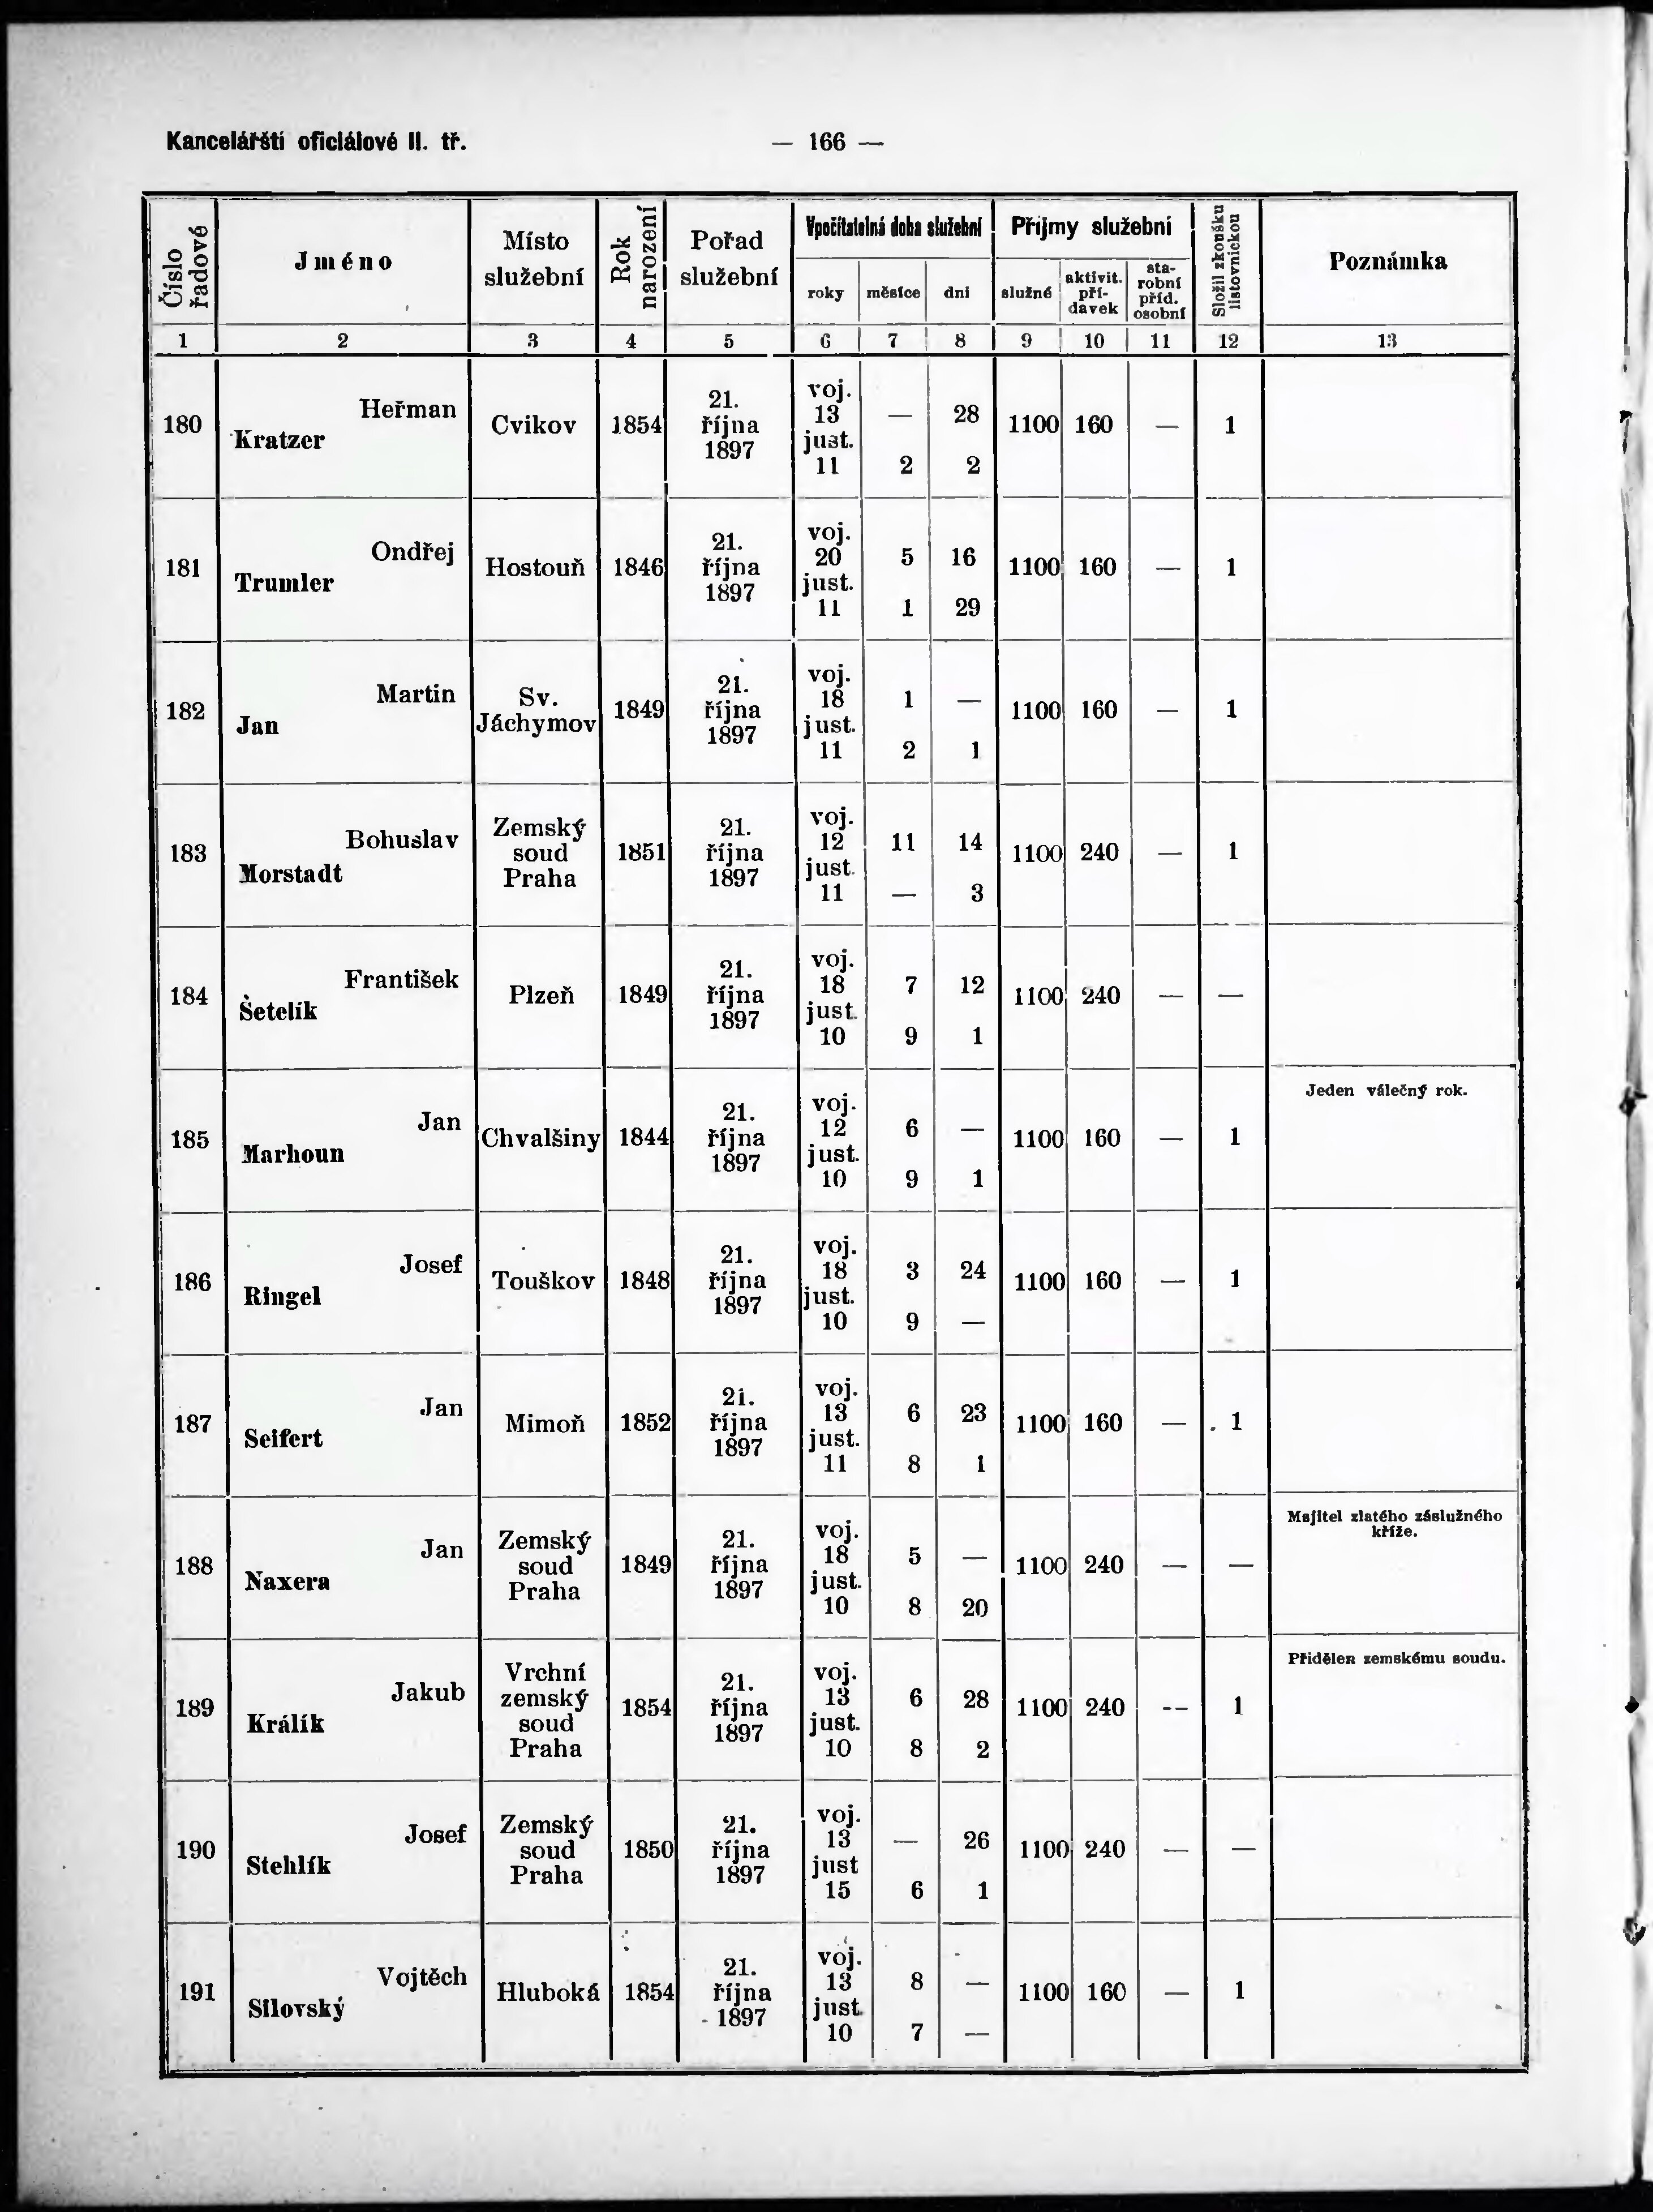 Kancelářští oficiálové II. tř. — 166 —
Číslo řadové | Jméno | Místo služební | Rok narození | Pořad služební | Vpočítatelná doba služební | Příjmy služební | Složil zkoušku listovnickou | Poznámka
roky | měsíce | dni | služné | aktivit. pří- davek | sta- robní příd. osobní
1 | 2 | 3 | 4 | 5 | 6 | 7 | 8 | 9 | 10 | 11 | 12 | 13
180 | Heřman Kratzer | Cvikov | 1854 | 21. října 1897 | voj. 13 just. 11 | — 2 | 28 2 | 1100 | 160 | — | 1
181 | Ondřej Trumler | Hostouň | 1846 | 21. října 1897 | voj. 20 just. 11 | 5 1 | 16 29 | 1100 | 160 | — | 1
182 | Martin Jan | Sv. Jáchymov | 1849 | 21. října 1897 | voj. 18 just. 11 | 1 2 | — 1 | 1100 | 160 | — | 1
183 | Bohuslav Morstadt | Zemský soud Praha | 1851 | 21. října 1897 | voj. 12 just. 11 | 11 — | 14 3 | 1100 | 240 | — | 1
184 | František Šetelík | Plzeň | 1849 | 21. října 1897 | voj. 18 just. 10 | 7 9 | 12 1 | 1100 | 240 | — | —
185 | Jan Marhoun | Chvalšiny | 1844 | 21. října 1897 | voj. 12 just. 10 | 6 9 | — 1 | 1100 | 160 | — | 1 | Jeden válečný rok.
186 | Josef Ringel | Touškov | 1848 | 21. října 1897 | voj. 18 just. 10 | 3 9 | 24 — | 1100 | 160 | — | 1
187 | Jan Seifert | Mimoň | 1852 | 21. října 1897 | voj. 13 just. 11 | 6 8 | 23 1 | 1100 | 160 | — | 1
188 | Jan Naxera | Zemský soud Praha | 1849 | 21. října 1897 | voj. 18 just. 10 | 5 8 | — 20 | 1100 | 240 | — | — | Majitel zlatého záslužného kříže.
189 | Jakub Králík | Vrchní zemský soud Praha | 1854 | 21. října 1897 | voj. 13 just. 10 | 6 8 | 28 2 | 1100 | 240 | — | 1 | Přidělen zemskému soudu.
190 | Josef Stehlík | Zemský soud Praha | 1850 | 21. října 1897 | voj. 13 just 15 | — 6 | 26 1 | 1100 | 240 | — | —
191 | Vojtěch Silovský | Hluboká | 1854 | 21. října 1897 | voj. 13 just. 10 | 8 7 | — — | 1100 | 160 | — | 1